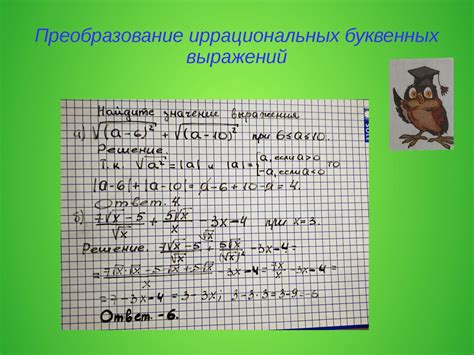 Преобразование иррациональных буквенных
выражений
Найдите значение выражения
а) √(a-6)² + √(a-10)² при 6≤a≤10.
Решение.
Т.к. √a² = |a| и |a| = { a, если a>0 -a, если a<0 то
|a-6|+|a-10| = a-6+10-a = 4.
Ответ. 4.
б) (7√x - 5)/√x + 5√x/x - 3x - 4 при x=3.
Решение. (7√x - 5)/√x + 5√x/(√x)² - 3x - 4 =
= (7√x·√x - 5√x + 5√x)/x - 3x - 4 = 7x/x - 3x - 4 =
= 7 - 3x - 4 = 3 - 3x; 3-3·3 = 3-9 = -6
Ответ. -6.